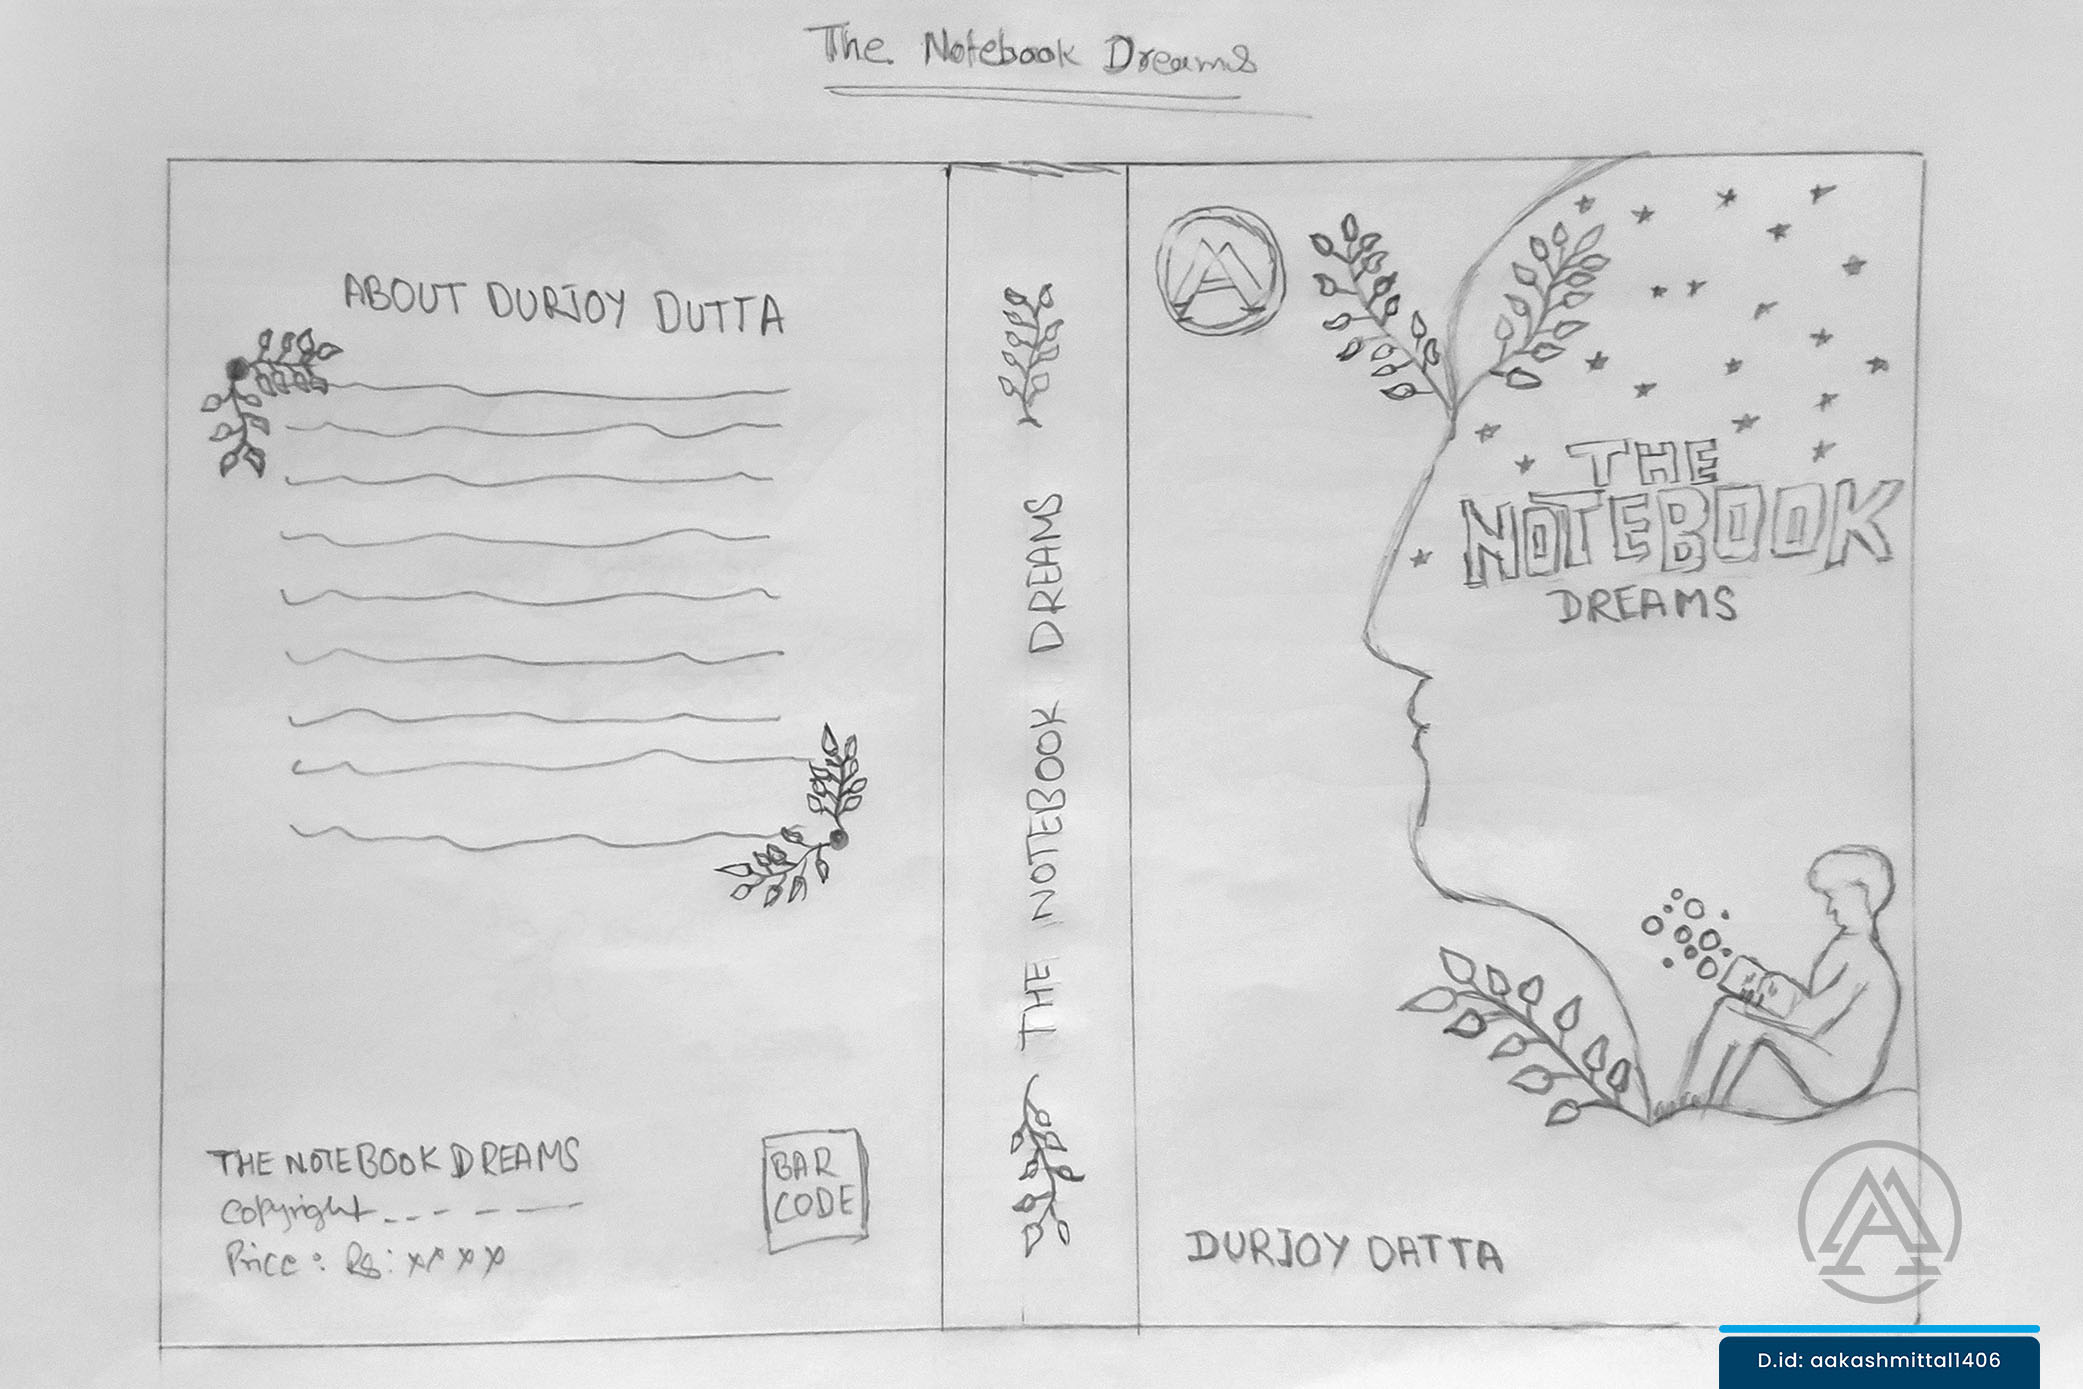 The Notebook Dreams
ABOUT DURJOY DUTTA
THE NOTEBOOK DREAMS
Copyright
Price: Rs: xxxx
BAR
CODE
THE NOTEBOOK DREAMS
THE
NOTEBOOK
DREAMS
DURJOY DATTA
D.id: aakashmittal1406